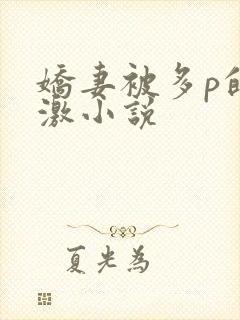 嬌妻被多p的
激小説
夏光為